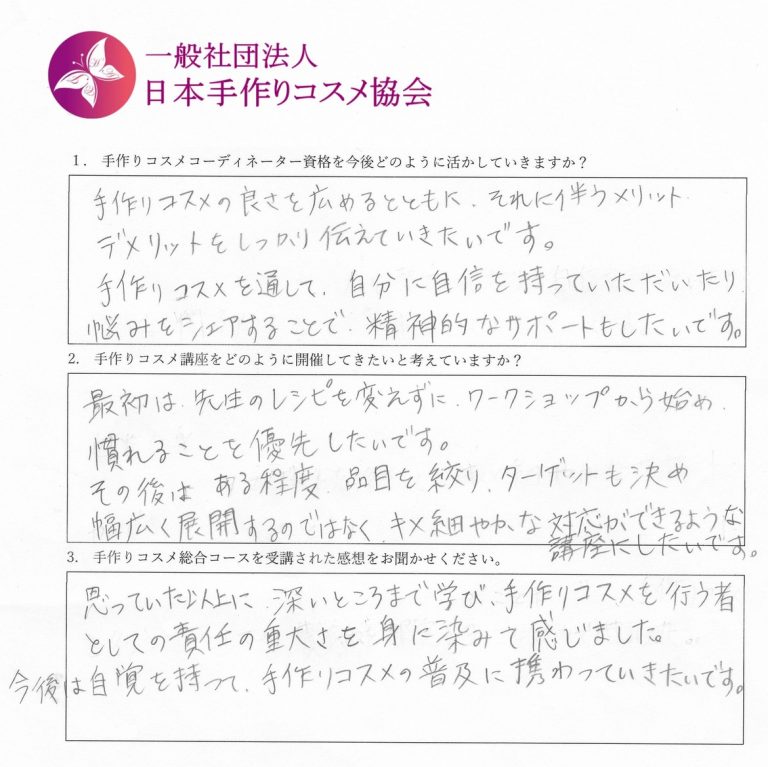 一般社団法人
日本手作りコスメ協会
1. 手作りコスメコーディネーター資格を今後どのように活かしていきますか？
手作りコスメの良さを広めるとともに、それに伴うメリット
デメリットをしっかり伝えていきたいです。
手作りコスメを通して、自分に自信を持っていただいたり
悩みをシェアすることで、精神的なサポートもしたいです。
2. 手作りコスメ講座をどのように開催してきたいと考えていますか？
最初は、先生のレシピを変えずに、ワークショップから始め、
慣れることを優先したいです。
その後は ある程度、品目を絞り、ターゲットも決め
幅広く展開するのではなく、キメ細やかな対応ができるような
講座にしたいです。
3. 手作りコスメ総合コースを受講された感想をお聞かせください。
思っていた以上に、深いところまで学び、手作りコスメを行う者
としての責任の重大さを身に染みて感じました。
今後は自覚を持って、手作りコスメの普及に携わっていきたいです。